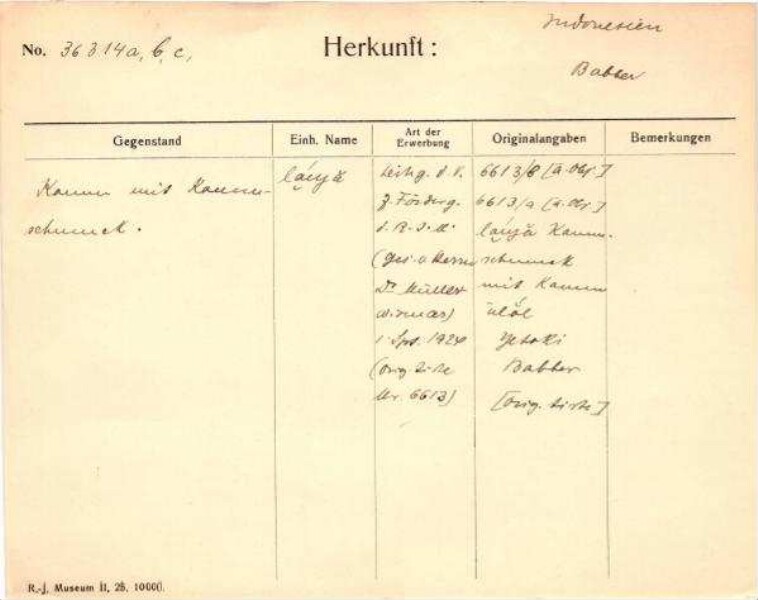 Indonesien
No. 36314a, b, c,
Herkunft:
Babber
Gegenstand
Einh. Name
Art der Erwerbung
Originalangaben
Bemerkungen
Kamm mit Kamm-
schmuck.
Leihg. d. V.
z. Förderg.
d. R-J-M.
(ges. v. Herrn
Dr. Müller
Wismar)
1924
(orig. Liste
Nr. 6613)
6613/B [a. Obj.]
6613/a [a. Obj.]
Kamm-
schmuck
mit Kamm
Babber
[orig. Liste]
R.-J. Museum II, 28, 10000.